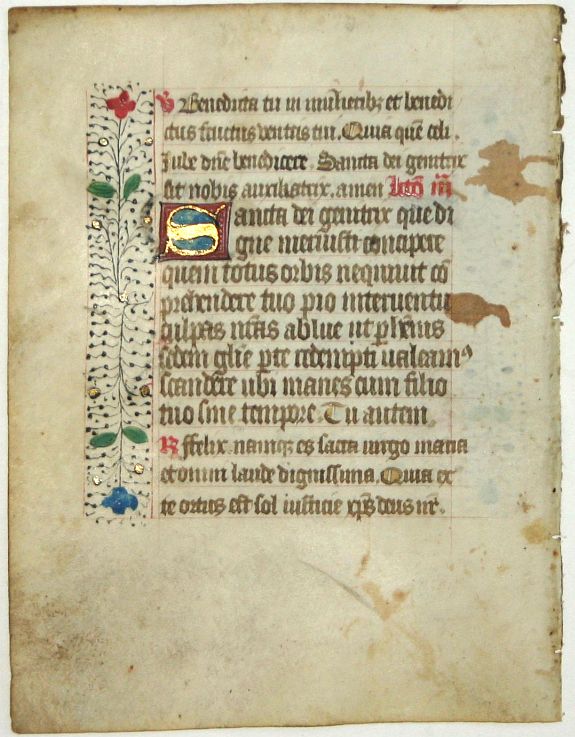 V Benedicta tu in mulieribꝫ et benedi
ctus fructus ventris tui. Quia quē celi.
Iube dn̄e benedicere. Sancta dei genitrix
sit nobis auxiliatrix. amen Lcō iiī
Sancta dei genitrix que di
gne meruisti concipere
quem totus orbis nequiuit cō
prehendere tuo pio interuentu
culpas nr̄as ablue ut p̄hennis
sedem glīe p te redempti ualeamꝰ
scandere ubi manes cum filio
tuo sine tempore. Tu autem
R Ffelix namqꝫ es sacra uirgo maria
et omni laude dignissima. Quia ex
te ortus est sol iusticie xp̄s deus nr̄.